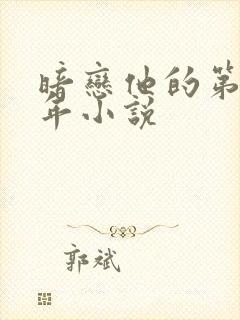 暗戀他的第
年小說
郭斌